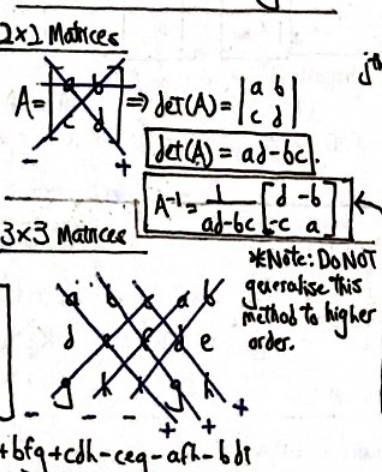 2×2 Matrices
A = [a b
c d] ⇒ det(A) = |a b
c d|
- +
det(A) = ad-bc.
A⁻¹ = 1/(ad-bc) [d -b
-c a]
3×3 Matrices
*Note: DO NOT
generalise this
method to higher
order.
a b c a b
d e f d e
g h i g h
- - - + + +
+bfg+cdh-ceg-afh-bdi